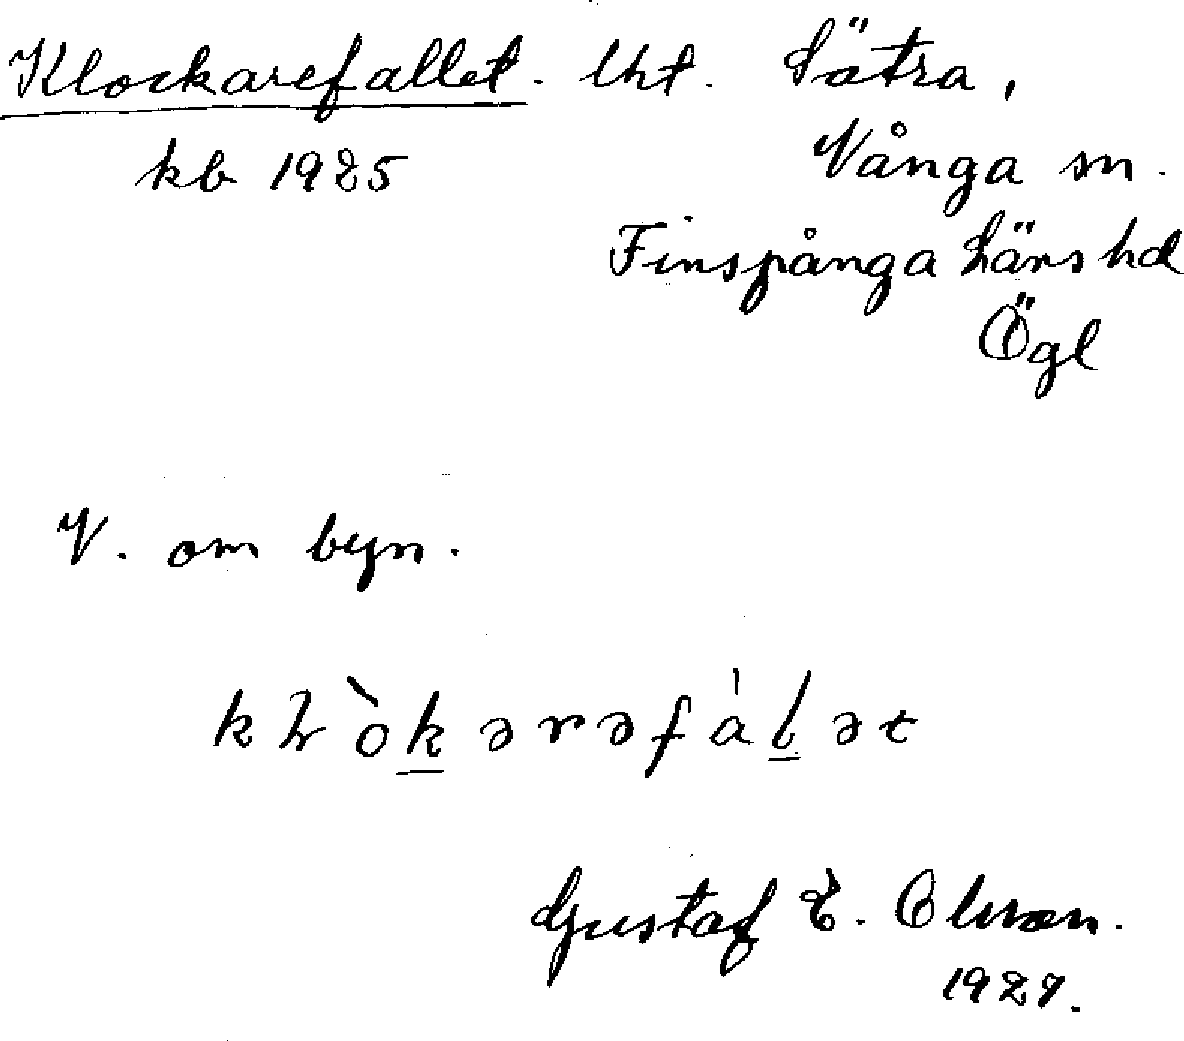 Klockarefallet. lht. Sätra,
kb 1925 Vånga sn.
Finspånga Läns hd
Ögl
V. om byn.
Gustaf E. Olsson.
1927.